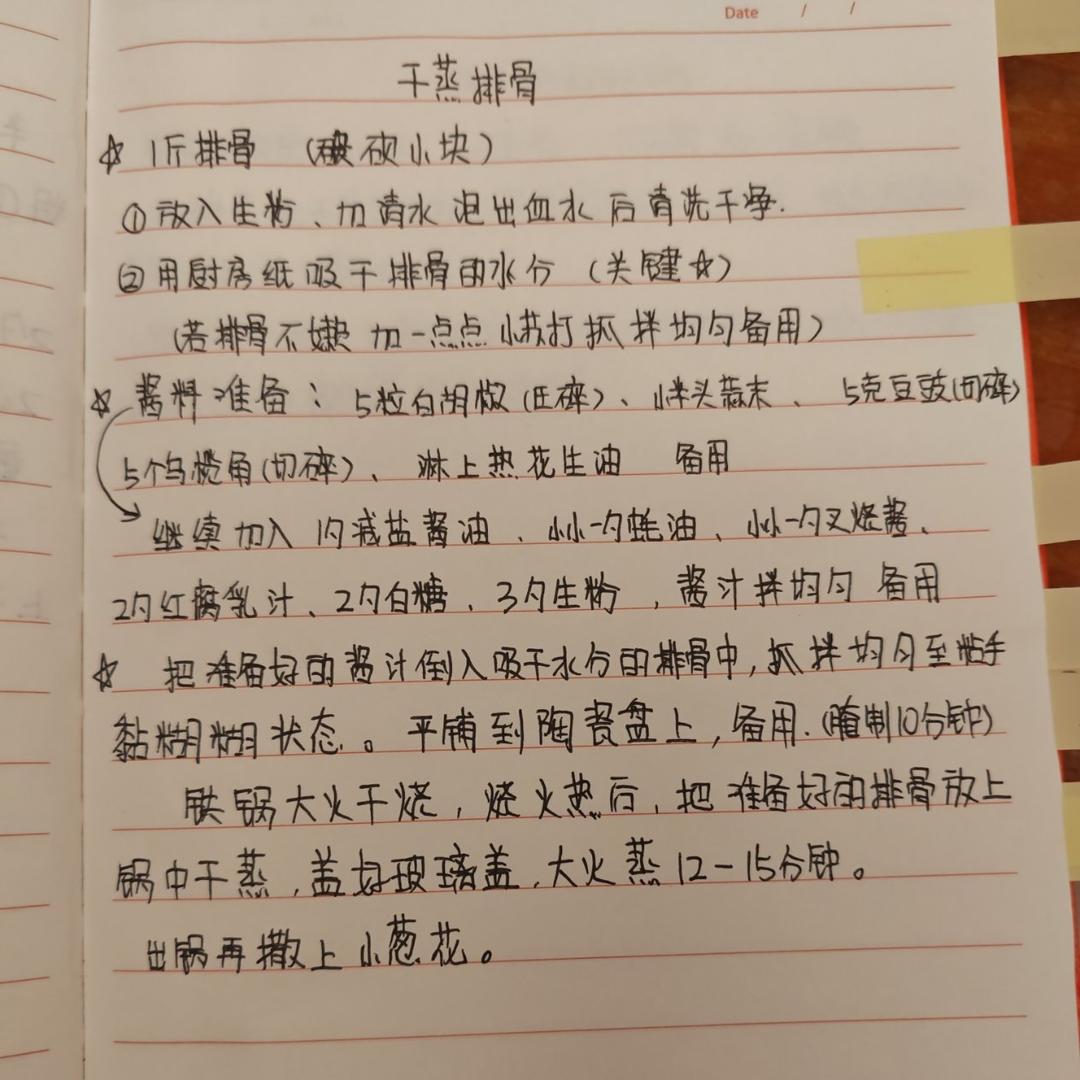 Date / /
干蒸排骨
☆ 1斤排骨 (砍小块)
①放入生粉、加清水泡出血水后清洗干净.
②用厨房纸吸干排骨的水分 (关键☆)
(若排骨不嫩 加一点点 小苏打抓拌均匀备用)
☆ 酱料准备: 5粒白胡椒(压碎)、半头蒜末、 5克豆豉(切碎)
5个乌榄角(切碎)、 淋上热花生油 备用
继续加入 1勺减盐酱油、小小一勺蚝油、小小一勺叉烧酱、
2勺红腐乳汁、2勺白糖、3勺生粉,酱汁拌均匀 备用
☆ 把准备好的酱汁倒入吸干水分的排骨中,抓拌均匀至粘手
黏糊糊状态。平铺到陶瓷盘上,备用.(腌制10分钟)
铁锅大火干烧,烧火热后,把准备好的排骨放上
锅中干蒸,盖好玻璃盖,大火蒸12-15分钟。
出锅再撒上小葱花。